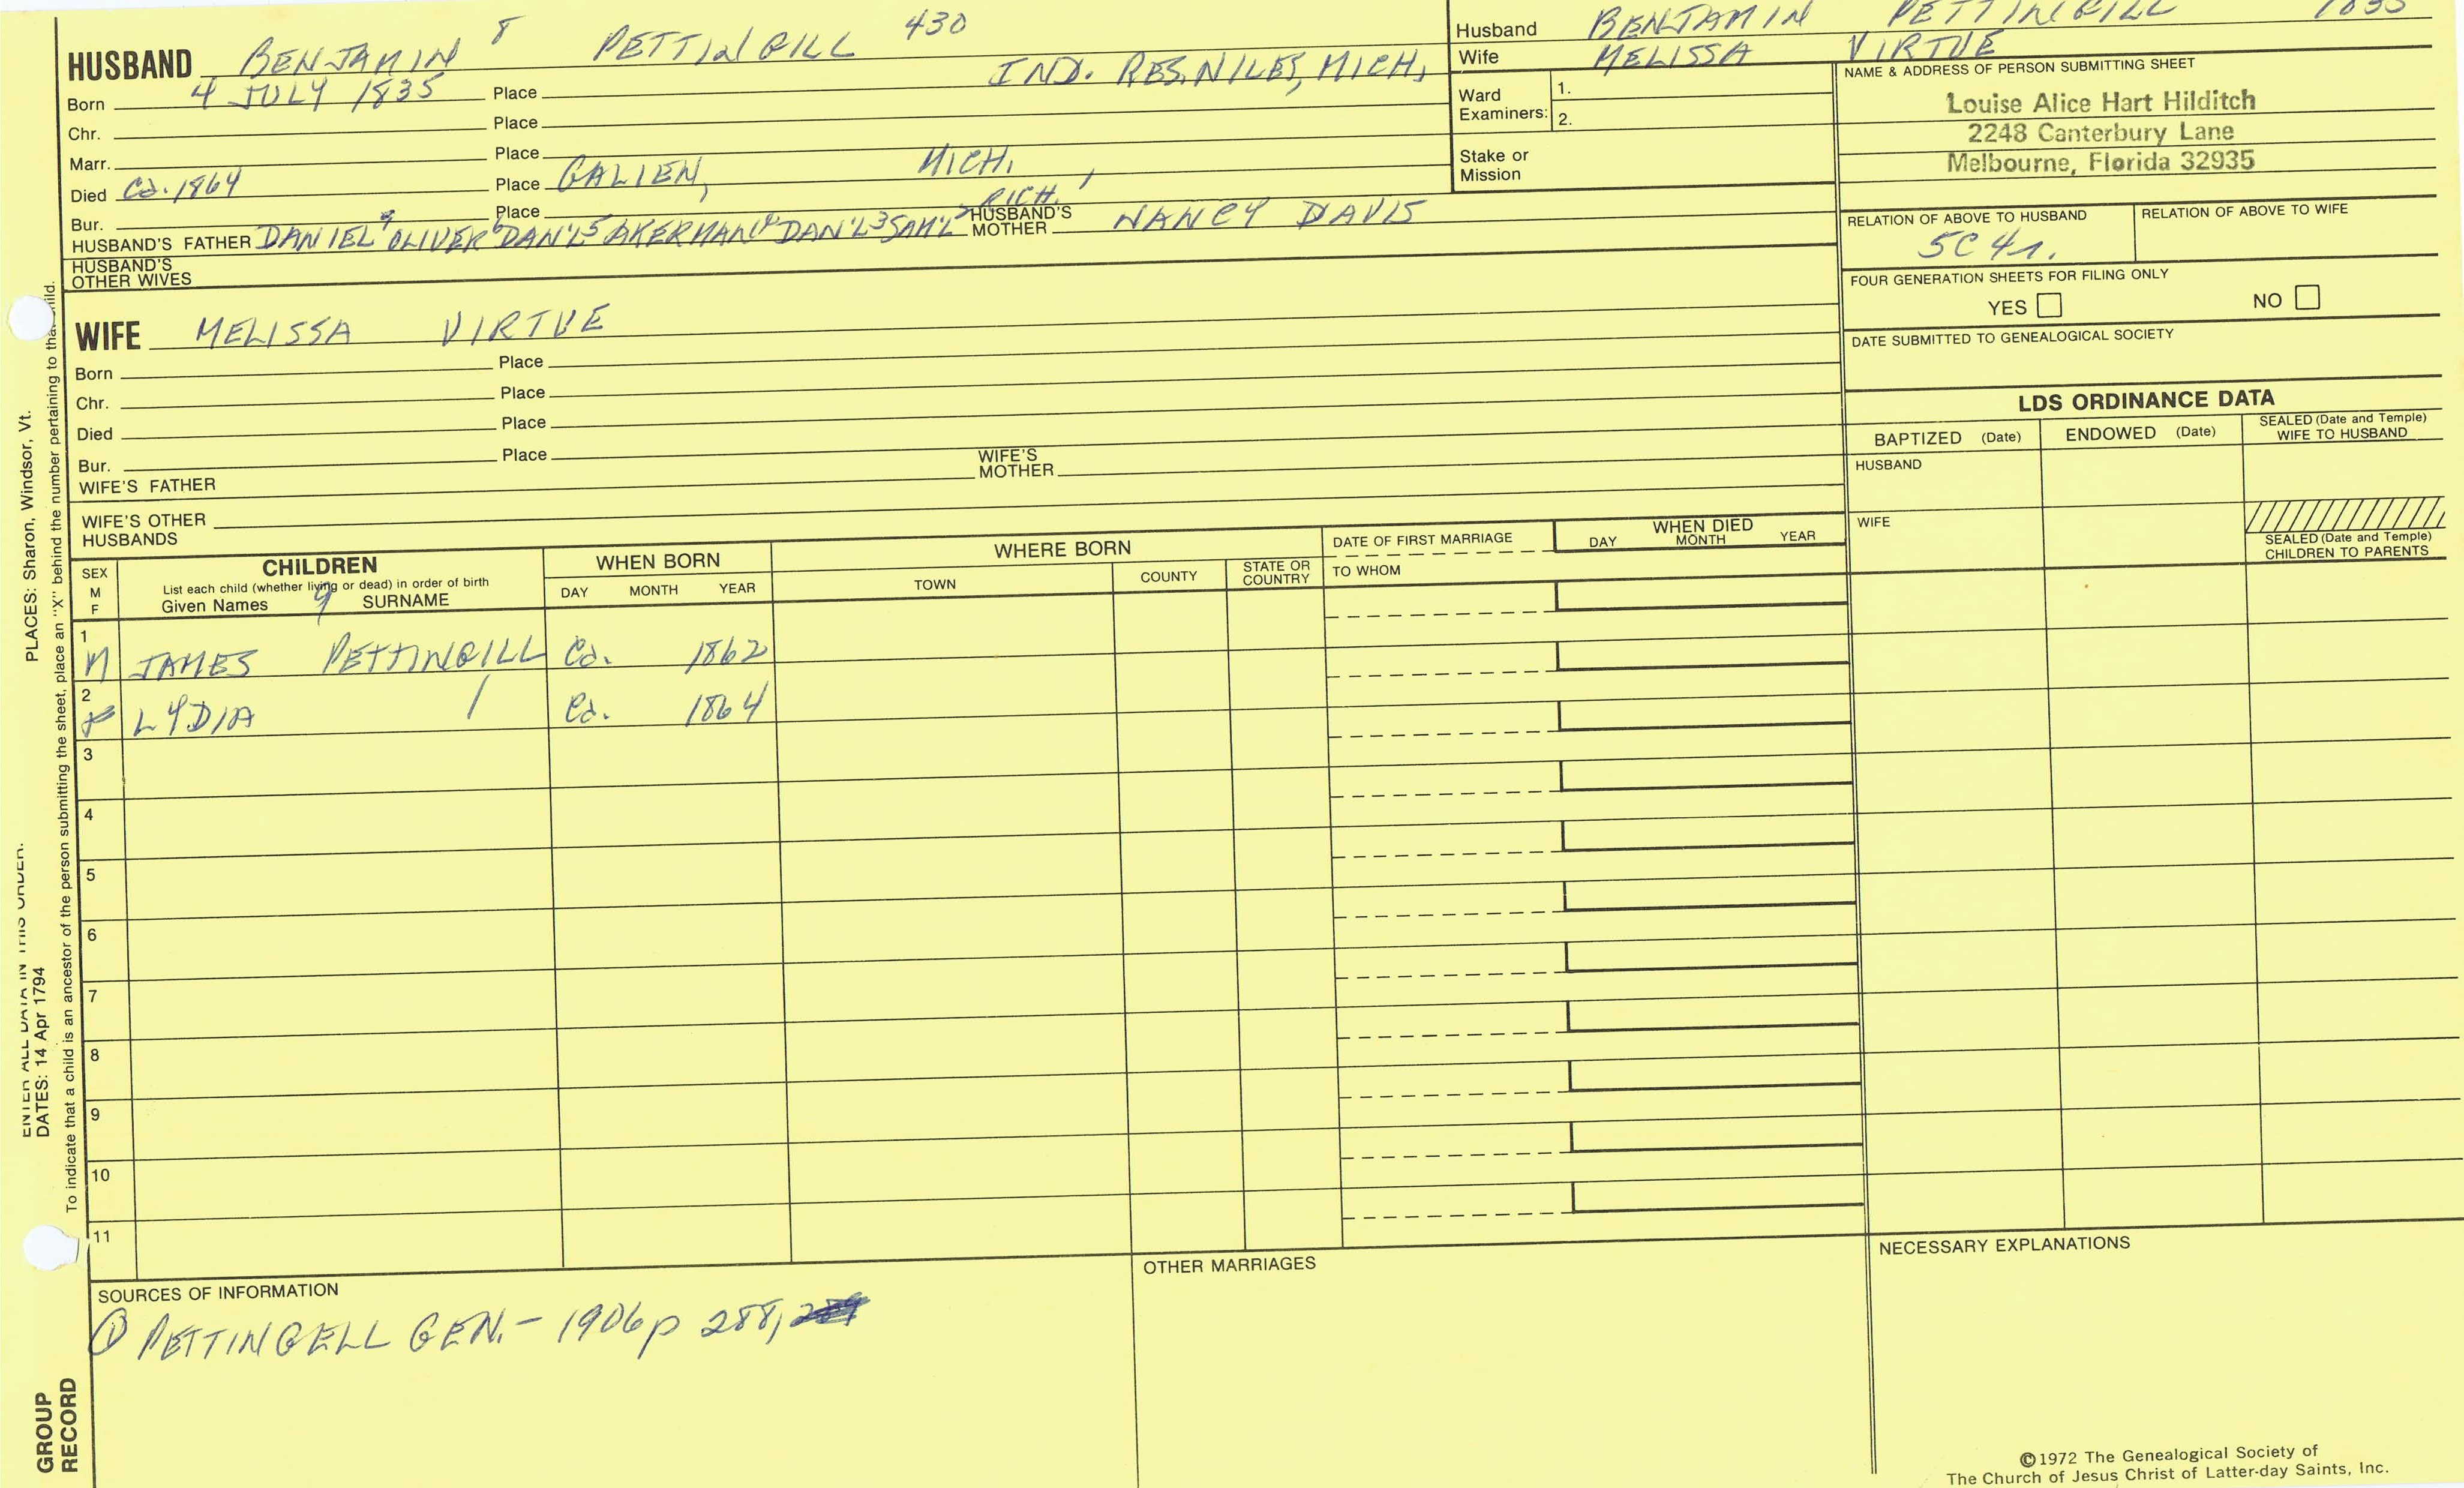 HUSBAND BENJAMIN 8 PETTINGILL 430
Born 4 JULY 1835 Place IND. RES. NILES, MICH,
Chr. Place
Marr. Place
Died Ca. 1864 Place GALIEN, MICH.
Bur. Place
HUSBAND'S FATHER DANIEL OLIVER 6 DAN'L 5 AKERMAN 4 DAN'L 3 SAM'L 2 RICH. 1 HUSBAND'S MOTHER NANCY DAVIS
HUSBAND'S OTHER WIVES
Husband BENJAMIN PETTINGILL 1835
Wife MELISSA VIRTUE
Ward Examiners: 1.
2.
Stake or Mission
NAME & ADDRESS OF PERSON SUBMITTING SHEET
Louise Alice Hart Hilditch
2248 Canterbury Lane
Melbourne, Florida 32935
RELATION OF ABOVE TO HUSBAND RELATION OF ABOVE TO WIFE
5C 4r.
FOUR GENERATION SHEETS FOR FILING ONLY
YES NO
DATE SUBMITTED TO GENEALOGICAL SOCIETY
WIFE MELISSA VIRTUE
Born Place
Chr. Place
Died Place
Bur. Place
WIFE'S FATHER WIFE'S MOTHER
WIFE'S OTHER HUSBANDS
LDS ORDINANCE DATA
BAPTIZED (Date) ENDOWED (Date) SEALED (Date and Temple) WIFE TO HUSBAND
HUSBAND
WIFE
SEALED (Date and Temple) CHILDREN TO PARENTS
SEX M F
CHILDREN
List each child (whether living or dead) in order of birth
Given Names 9 SURNAME
WHEN BORN
DAY MONTH YEAR
WHERE BORN
TOWN COUNTY STATE OR COUNTRY
DATE OF FIRST MARRIAGE
TO WHOM
WHEN DIED
DAY MONTH YEAR
1
M JAMES PETTINGILL Ca. 1862
2
F LYDIA / Ca. 1864
3
4
5
6
7
8
9
10
11
SOURCES OF INFORMATION
① PETTINGELL GEN. - 1906 p 288,
OTHER MARRIAGES
NECESSARY EXPLANATIONS
©1972 The Genealogical Society of
The Church of Jesus Christ of Latter-day Saints, Inc.
ENTER ALL DATA IN THIS ORDER.
DATES: 14 Apr 1794
PLACES: Sharon, Windsor, Vt.
To indicate that a child is an ancestor of the person submitting the sheet, place an "X" behind the number pertaining to that child.
GROUP
RECORD